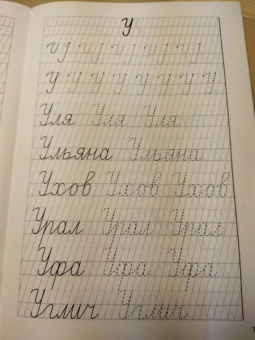 У
У У У У У У У У
Уля Уля Уля
Ульяна Ульяна
Ухов Ухов Ухов
Урал Урал Урал
Уфа Уха Уфа
Углич Углич